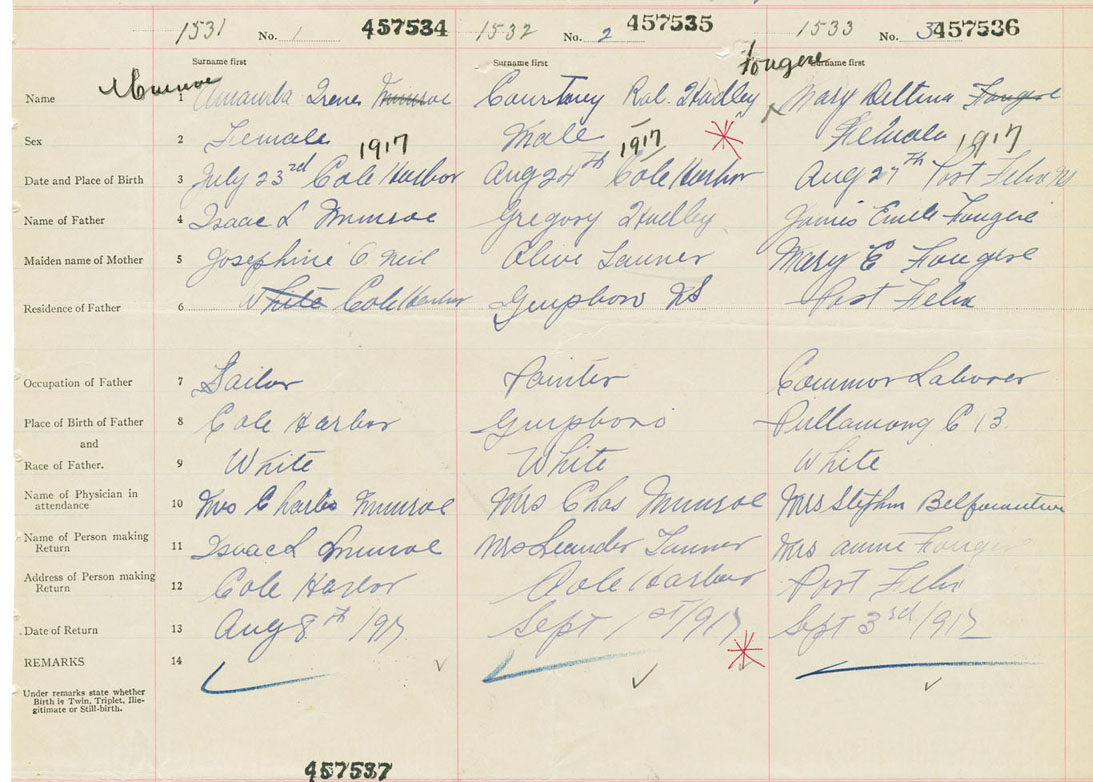 1531 No. 1 457534 1532 No. 2 457535 1533 No. 3 457536
Surname first Surname first Surname first
Munroe Fougere
Name 1 Irene Munroe Courtney Hadley Mary Fougere
Sex 2 Female 1917 Male 1917 Female 1917
Date and Place of Birth 3 July 23rd Cole Harbor Aug 24th Cole Harbor Aug 27th Port Felix NS
Name of Father 4 Isaac L Munroe Gregory Hadley James Emile Fougere
Maiden name of Mother 5 Josephine O Neil Olive Tanner Mary E Fougere
Residence of Father 6 White Cole Harbor Guysboro NS Port Felix
Occupation of Father 7 Sailor Painter Common Laborer
Place of Birth of Father 8 Cole Harbor Guysboro C B
and
Race of Father. 9 White White White
Name of Physician in
attendance 10 Mrs Charles Munroe Mrs Chas Munroe Mrs Stephen
Name of Person making
Return 11 Isaac L Munroe Mrs Leander Tanner Mrs Annie Fougere
Address of Person making
Return 12 Cole Harbor Cole Harbor Port Felix
Date of Return 13 Aug 8th /917 Sept 1st /917 Sept 3rd /917
REMARKS 14
Under remarks state whether
Birth is Twin, Triplet, Ille-
gitimate or Still-birth.
457537